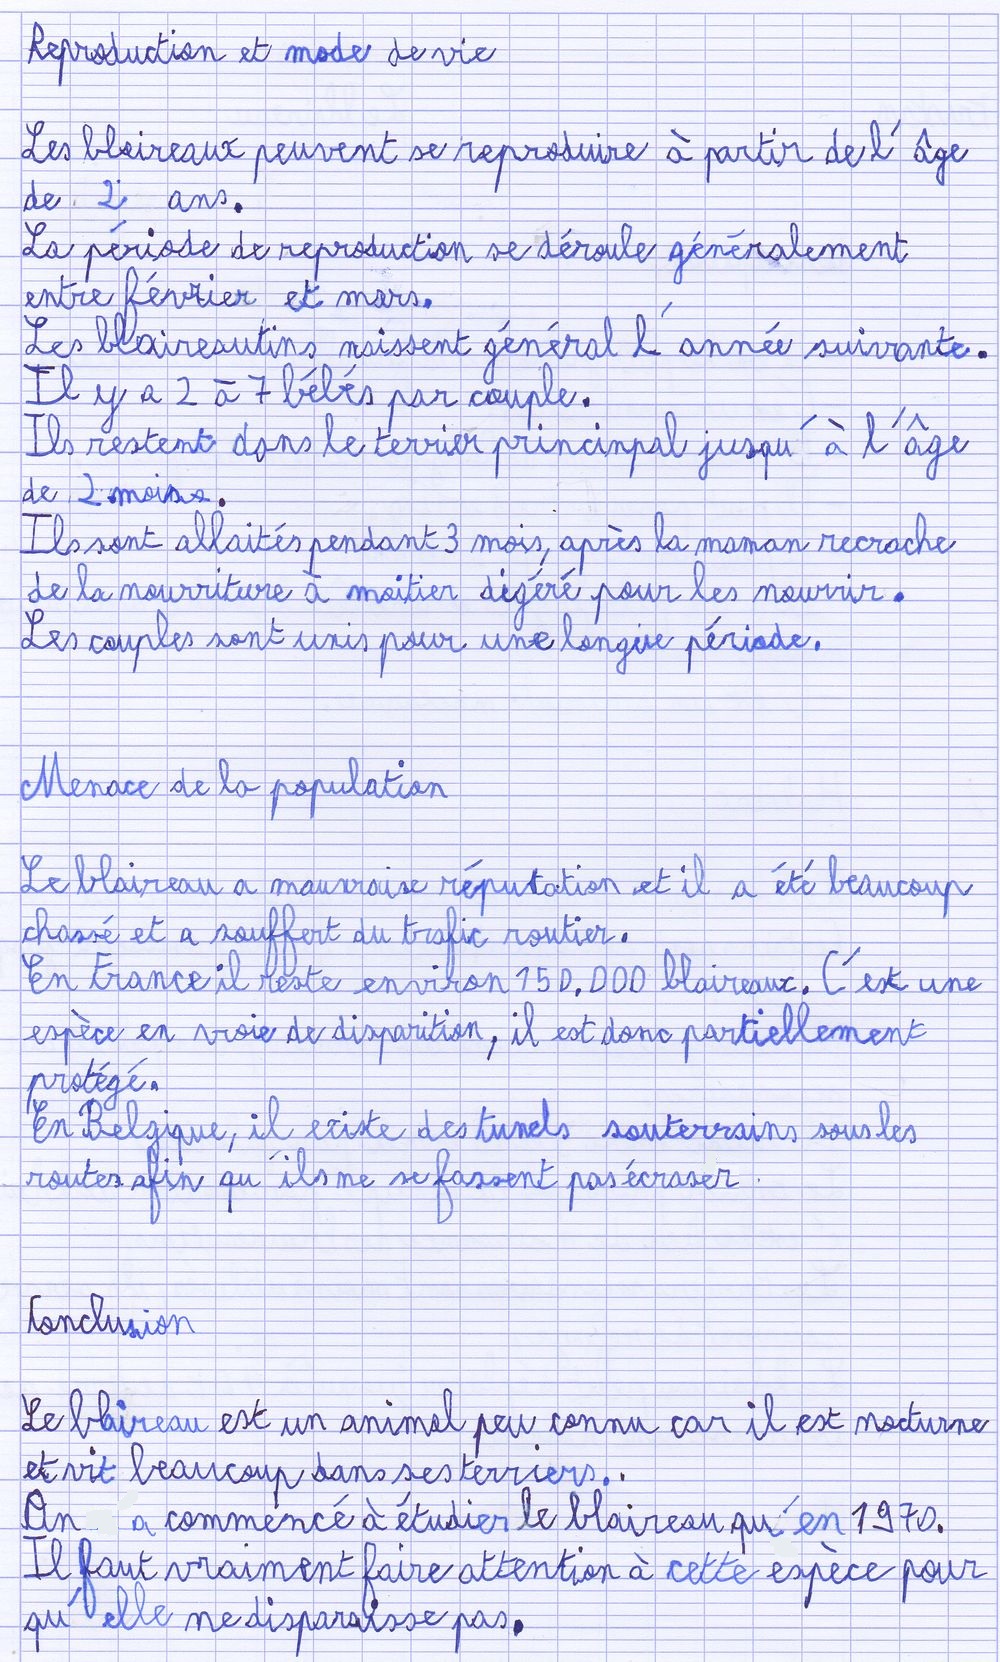 Reproduction et mode de vie
Les blaireaux peuvent se reproduire à partir de l'âge
de 2 ans.
La période de reproduction se déroule généralement
entre février et mars.
Les blaireautins naissent général l'année suivante.
Il y a 2 à 7 bébés par couple.
Ils restent dans le terrier princinpal jusqu'à l'âge
de 2 mois.
Ils sont allaités pendant 3 mois, après la maman recrache
de la nourriture à moitier digéré pour les nourrir.
Les couples sont unis pour une longue période.
Menace de la population
Le blaireau a mauvaise réputation et il a été beaucoup
chassé et a souffert du trafic routier.
En France il reste environ 150.000 blaireaux. C'est une
espèce en vroie de disparition, il est donc partiellement
protégé.
En Belgique, il existe des tunels souterrains sous les
routes afin qu'ils ne se fassent pas écraser.
Conclusion
Le blaireau est un animal peu connu car il est nocturne
et vit beaucoup dans ses terriers..
On a commencé à étudier le blaireau qu'en 1970.
Il faut vraiment faire attention à cette espèce pour
qu'elle ne disparaisse pas.